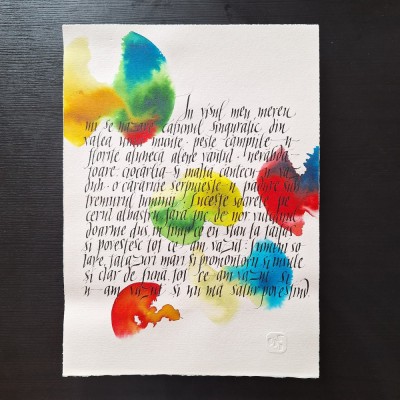 În visul meu mereu
mi se năzare cătunul singuratic din
valea unui munte peste câmpiile-n
floare alunecă alene vântul
soare, ciocârlia și naiba contecu-n văz-
duh. o cărărue șerpuiește în pădure sub
tremurul luminii. Sucește soarele pe
cerul albastru fără pic de nor vulturul
doarme dus, în timp ce eu stau la taifas
și povestesc tot ce-am văzut: lumini so-
lare, talazuri mari și promontorii și insule
și clar de lună, tot ce-am văzut și
n-am văzut și nu mă satur povestind.